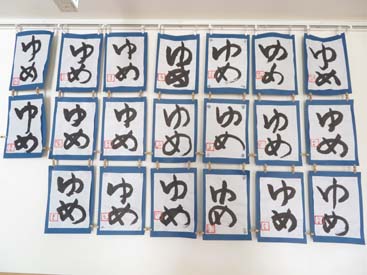 ゆめ ゆめ ゆめ ゆめ ゆめ ゆめ ゆめ
ゆめ ゆめ ゆめ ゆめ ゆめ ゆめ ゆめ
ゆめ ゆめ ゆめ ゆめ ゆめ ゆめ